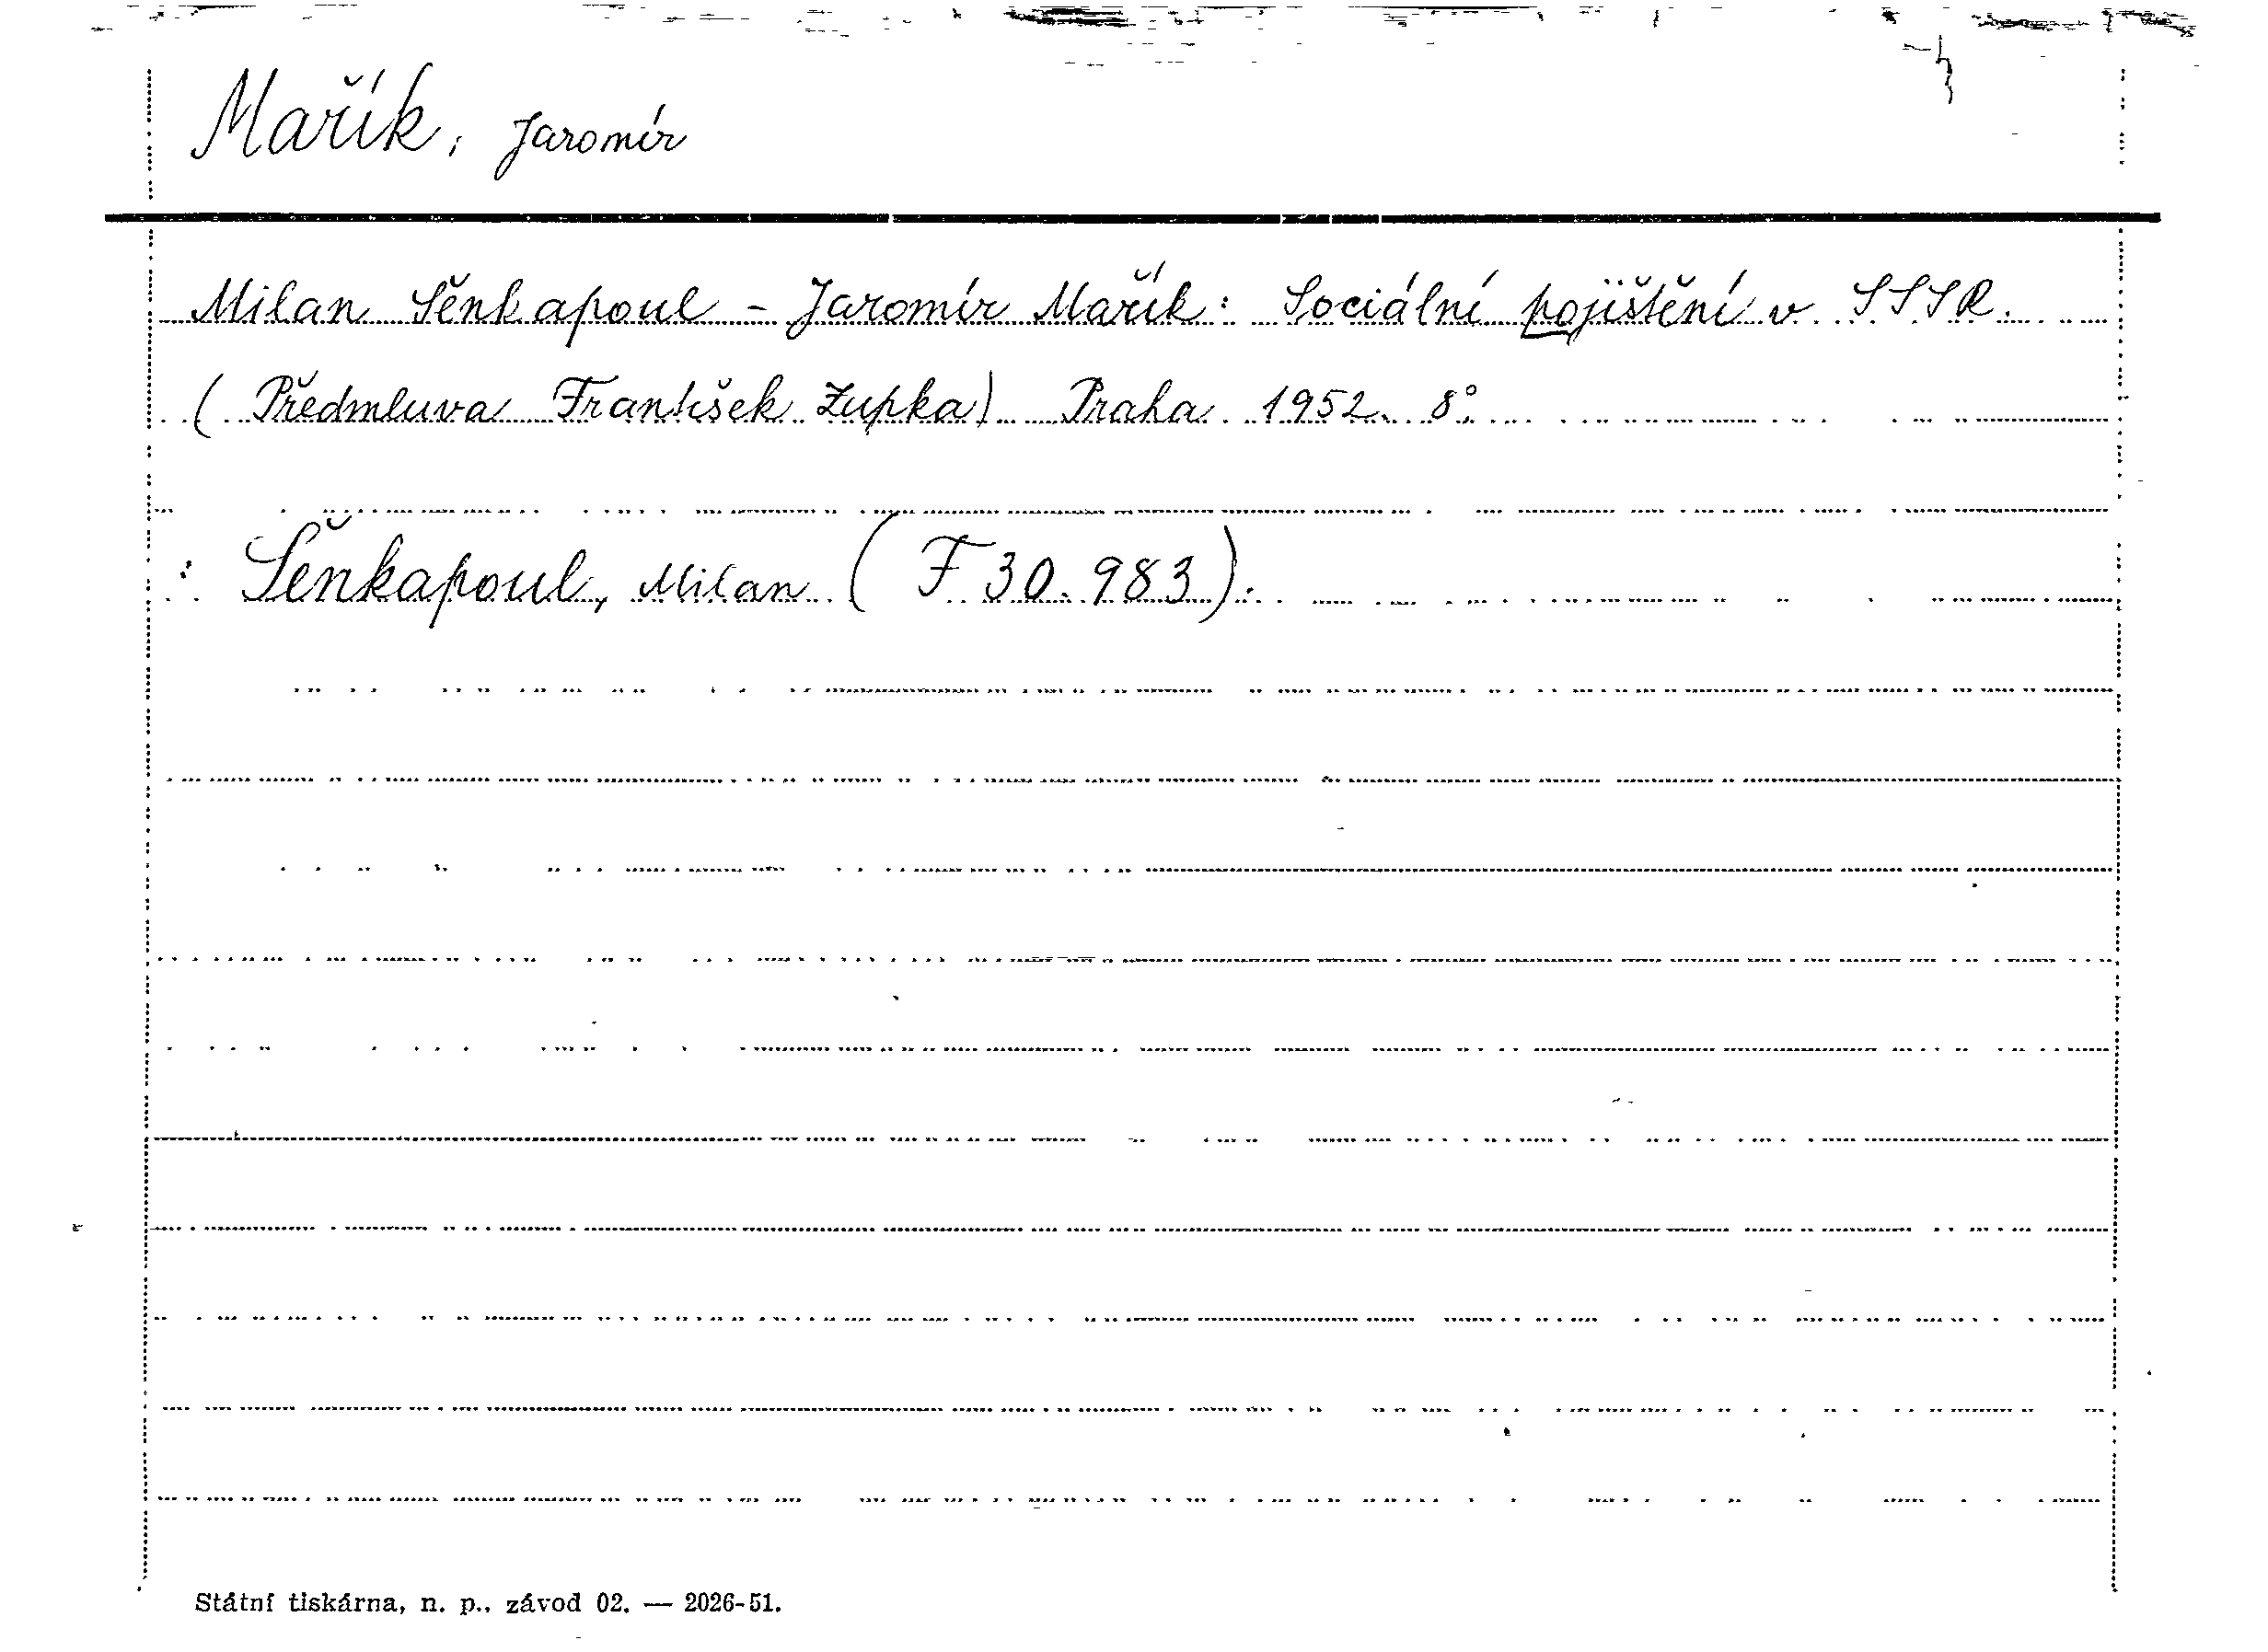 Mařík, Jaromír
Milan Sěnkapoul - Jaromír Mařík: Sociální pojištění v SSSR.
(Předmluva František Zupka) Praha 1952. 8°.
: Šenkapoul, Milan (F 30.983).
Státní tiskárna, n. p., závod 02. — 2026-51.